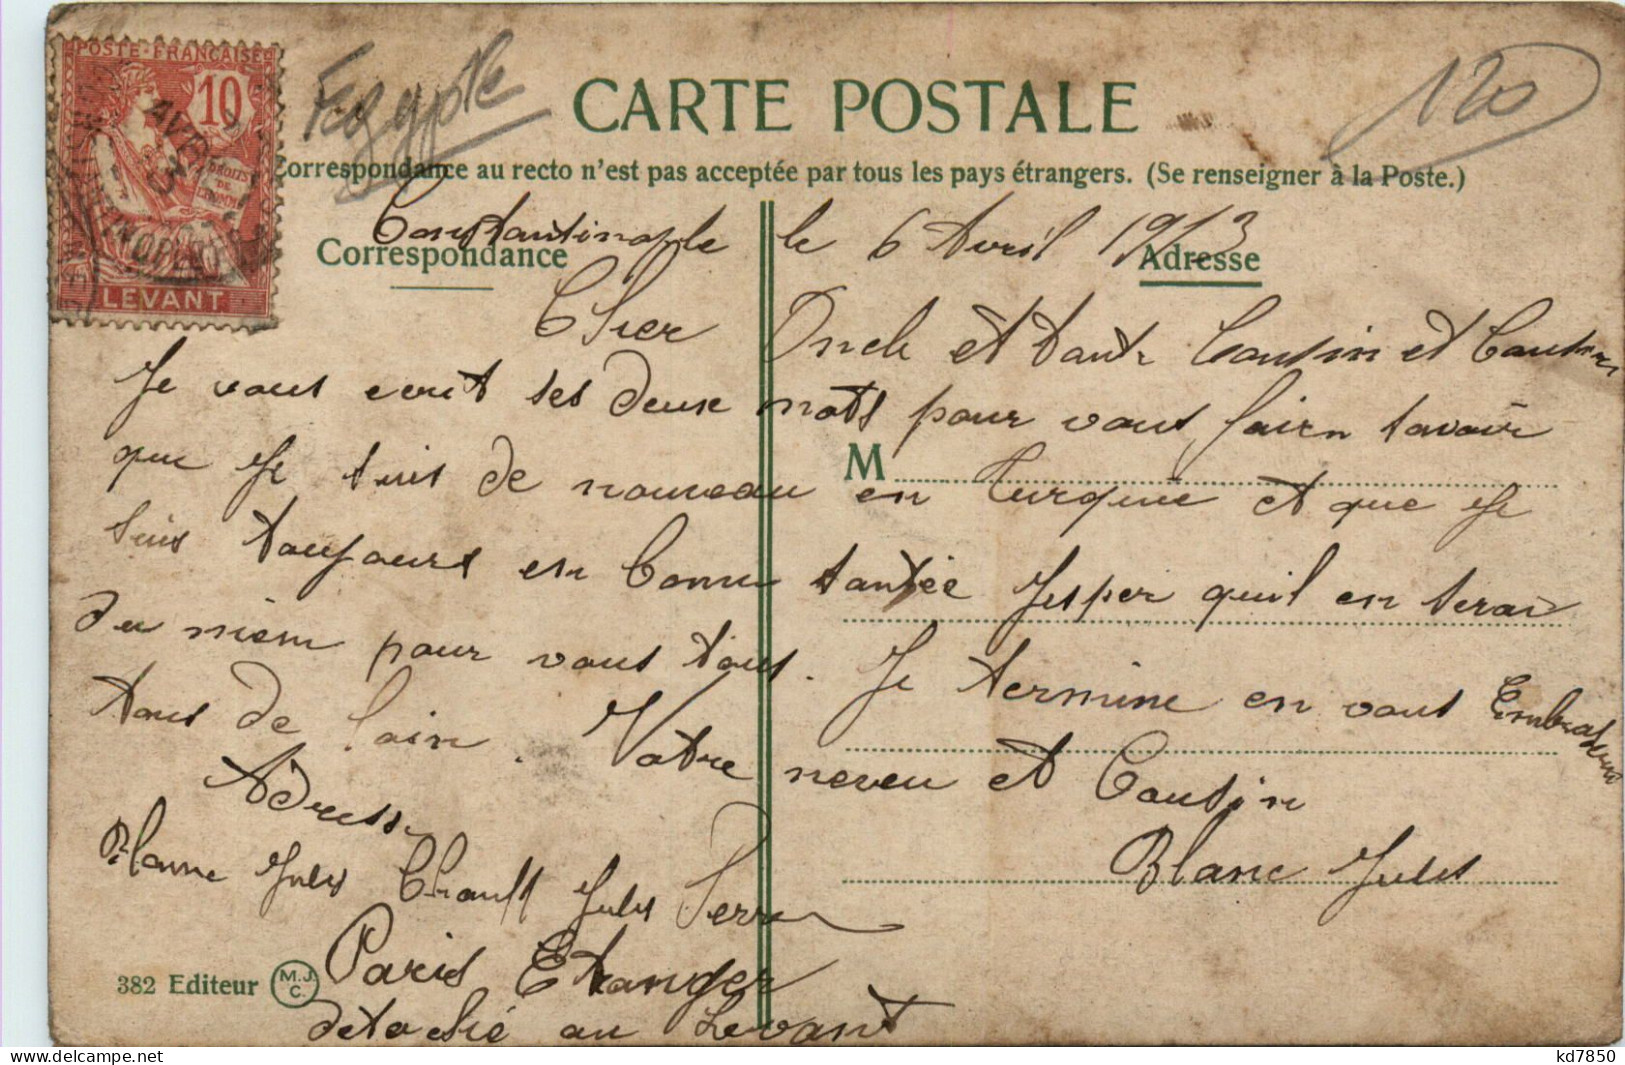 POSTE FRANÇAISE
10
LEVANT
Egypte
120
CARTE POSTALE
Correspondance au recto n'est pas acceptée par tous les pays étrangers. (Se renseigner à la Poste.)
Constantinople le 6 Avril 1913
Correspondance
Adresse
Cher Oncle et tante Cousin et Cousine
Je vous ecrit ses deux mots pour vous fairn savoir
que Je suis de nouveau en Turquie et que Je
M
suis toujours en bonne santée Jesper quil en serai
du mêm pour vous tous. Je termine en vous Embrassent
tous de loin. Votre neveu et Cousin
Blanc Jules
Adresse
Blanc Jules Chauff Jules
Paris Etranger
detaché au Levant
382 Editeur M.J.C.
kd7850